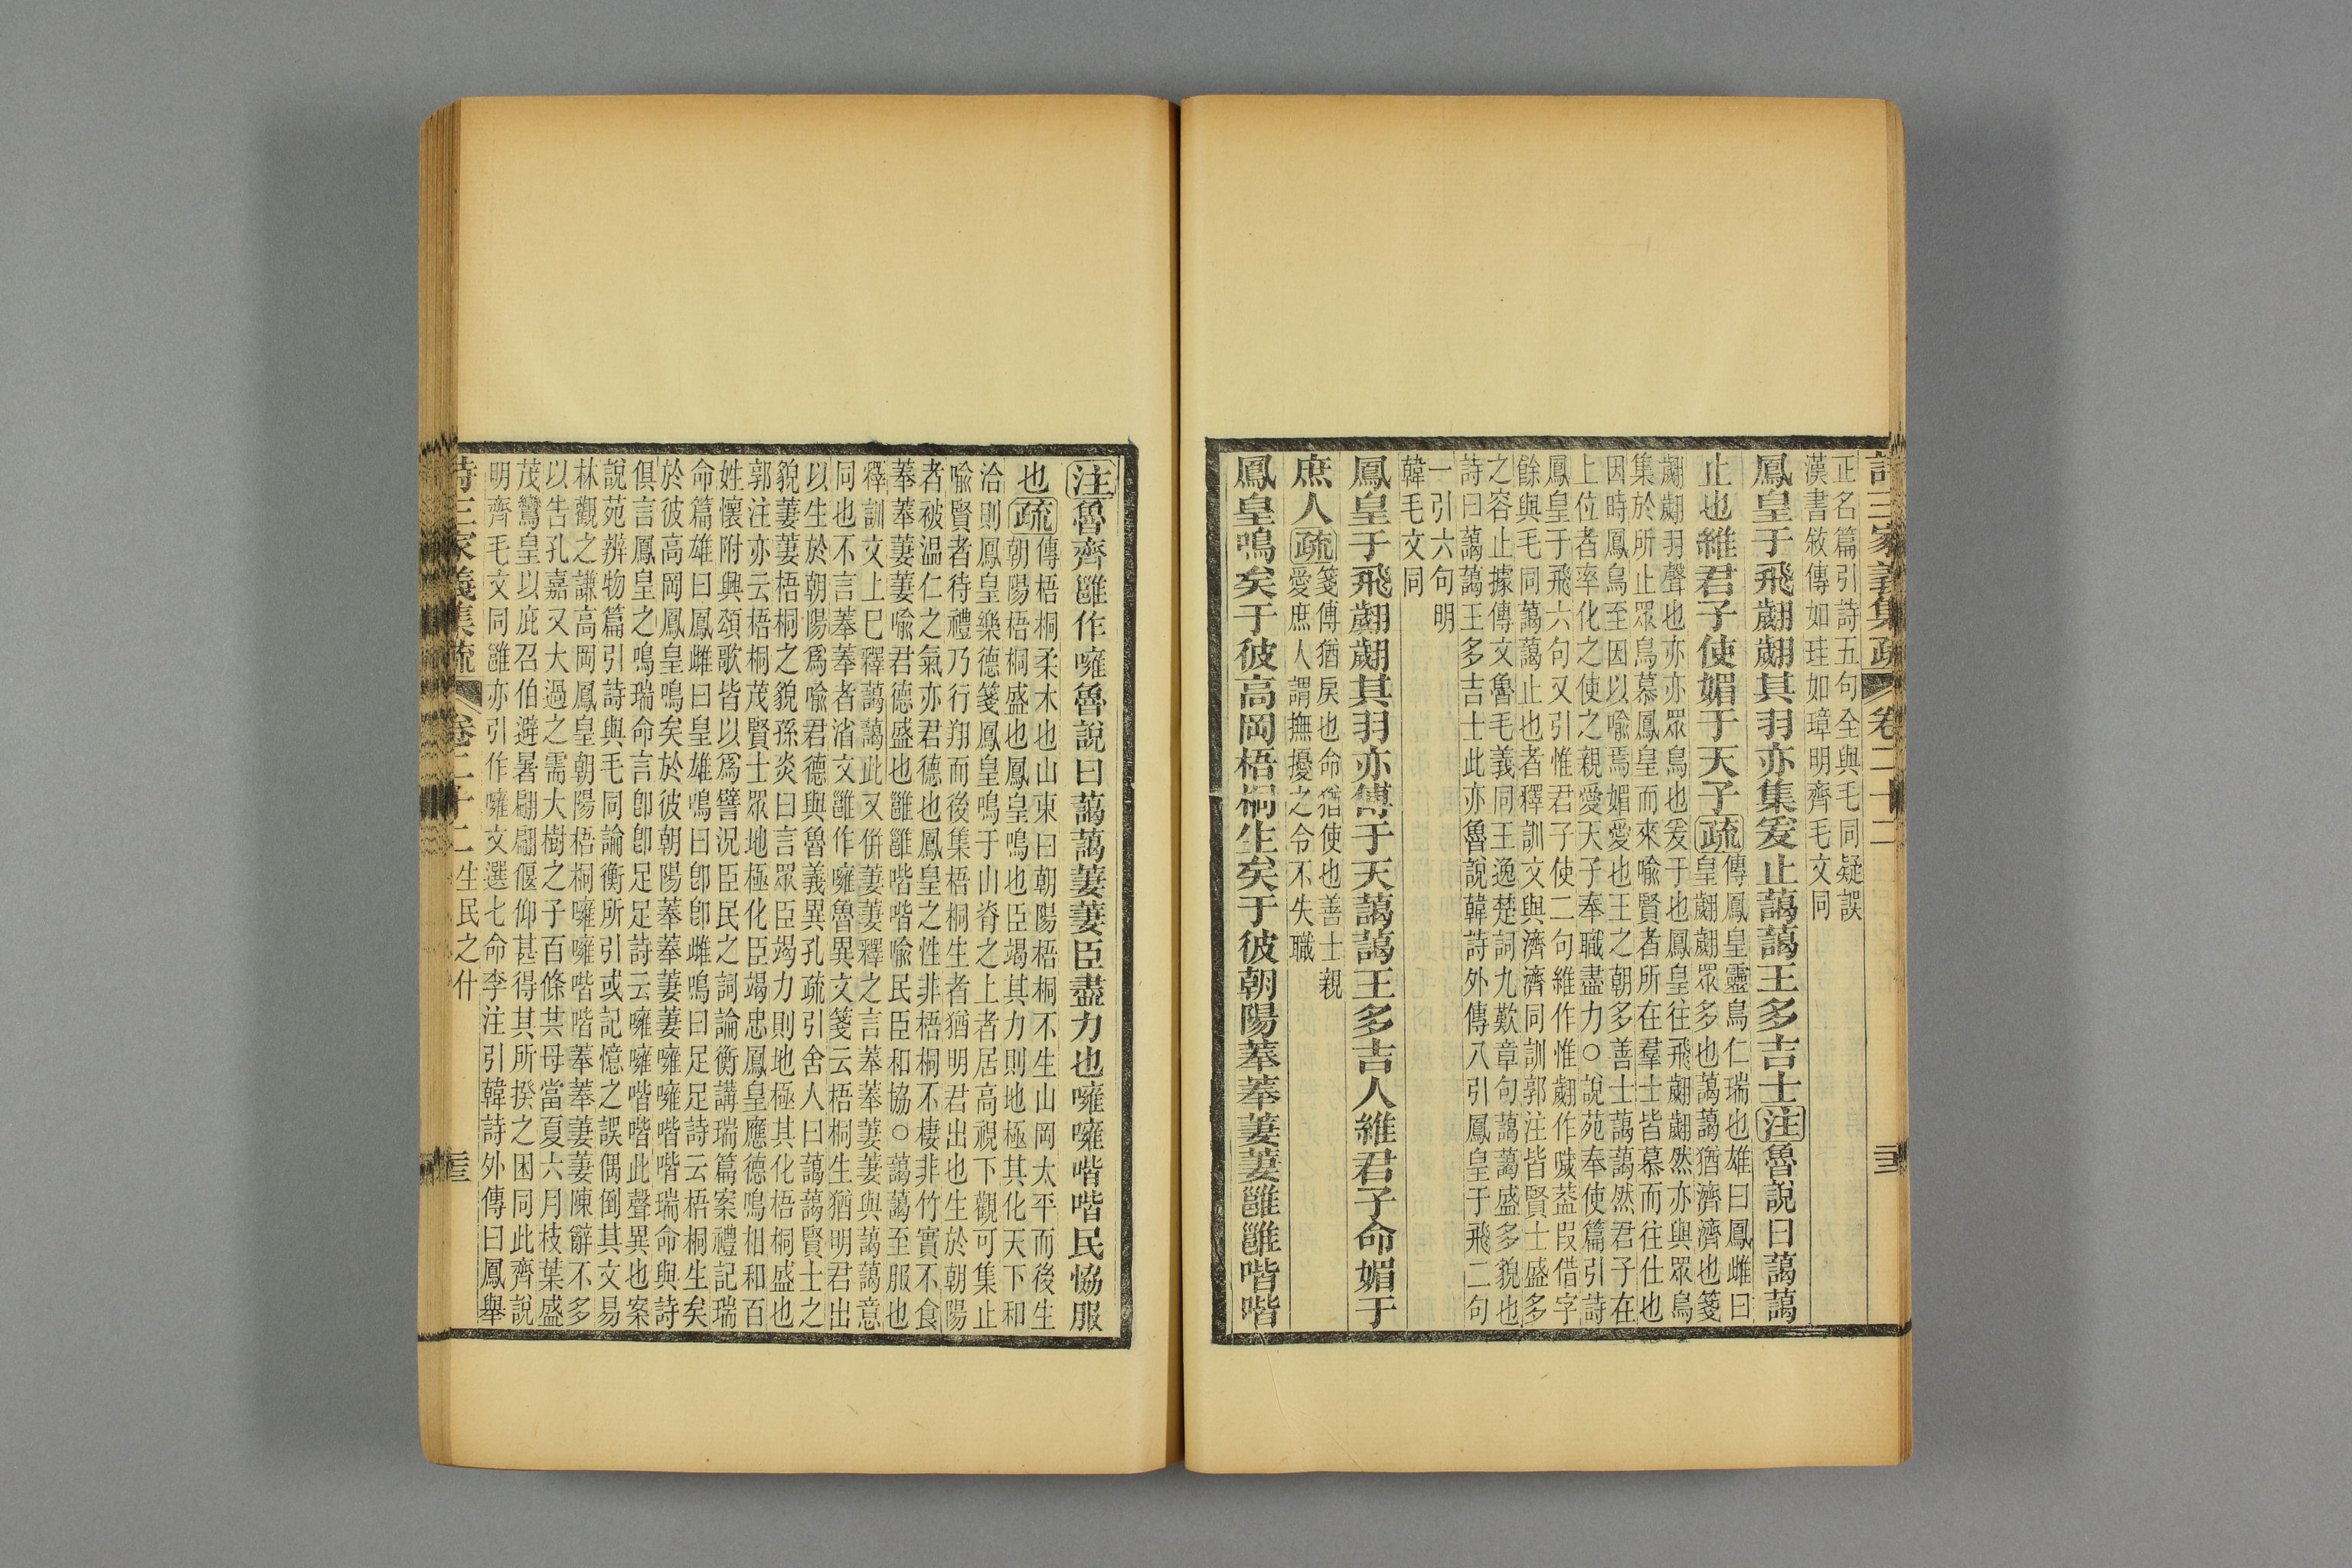 詩三家義集疏 卷二十二
正名篇引詩五句全與毛同疑誤
漢書敘傳如珪如璋明齊毛文同
鳳皇于飛翽翽其羽亦集爰止藹藹王多吉士注魯說曰藹藹
止也維君子使媚于天子疏傳鳳皇靈鳥仁瑞也雄曰鳳雌曰
皇翽翽眾多也藹藹猶濟濟也箋
翽翽羽聲也亦亦眾鳥也爰于也鳳皇往飛翽翽然亦與眾鳥
集於所止眾鳥慕鳳皇而來喻賢者所在羣士皆慕而往仕也
因時鳳鳥至因以喻焉媚愛也王之朝多善士藹藹然君子在
上位者率化之使之親愛天子奉職盡力○說苑奉使篇引詩
鳳皇于飛六句又引惟君子使二句維作惟翽作噦葢叚借字
餘與毛同藹藹止也者釋訓文與濟濟同訓郭注皆賢士盛多
之容止據傳文魯毛義同王逸楚詞九歎章句藹藹盛多貌也
詩曰藹藹王多吉士此亦魯說韓詩外傳八引鳳皇于飛二句
一引六句明
韓毛文同
鳳皇于飛翽翽其羽亦傅于天藹藹王多吉人維君子命媚于
庶人疏箋傳猶戾也命猶使也善士親
愛庶人謂撫擾之令不失職
鳳皇鳴矣于彼高岡梧桐生矣于彼朝陽菶菶萋萋雝雝喈喈
注魯齊雝作噰魯說曰藹藹萋萋臣盡力也噰噰喈喈民協服
也疏傳梧桐柔木也山東曰朝陽梧桐不生山岡太平而後生
朝陽梧桐盛也鳳皇鳴也臣竭其力則地極其化天下和
洽則鳳皇樂德箋鳳皇鳴于山脊之上者居高視下觀可集止
喻賢者待禮乃行翔而後集梧桐生者猶明君出也生於朝陽
者被温仁之氣亦君德也鳳皇之性非梧桐不棲非竹實不食
菶菶萋萋喻君德盛也雝雝喈喈喻民臣和協○藹藹至服也
釋訓文上巳釋藹藹此又併萋萋釋之言菶菶萋萋與藹藹意
同也不言菶菶者渻文雝作噰魯異文箋云梧桐生猶明君出
以生於朝陽爲喻君德與魯義異孔疏引舍人曰藹藹賢士之
貌萋萋梧桐之貌孫炎曰言眾臣竭力則地極其化梧桐盛也
郭注亦云梧桐茂賢士眾地極化臣竭忠鳳皇應德鳴相和百
姓懷附興頌歌皆以爲譬況臣民之詞論衡講瑞篇案禮記瑞
命篇雄曰鳳雌曰皇雄鳴曰卽卽雌鳴曰足足詩云梧桐生矣
於彼高岡鳳皇鳴矣於彼朝陽菶菶萋萋噰噰喈喈瑞命與詩
俱言鳳皇之鳴瑞命言卽卽足足詩云噰噰喈喈此聲異也案
說苑辨物篇引詩與毛同論衡所引或記憶之誤偶倒其文易
林觀之謙高岡鳳皇朝陽梧桐噰噰喈喈菶菶萋萋陳辭不多
以告孔嘉又大過之需大樹之子百條共母當夏六月枝葉盛
茂鸞皇以庇召伯避暑翩翩偃仰甚得其所揆之困同此齊說
明齊毛文同雝亦引作噰文選七命李注引韓詩外傳曰鳳舉
詩三家義集疏 卷二十二 生民之什